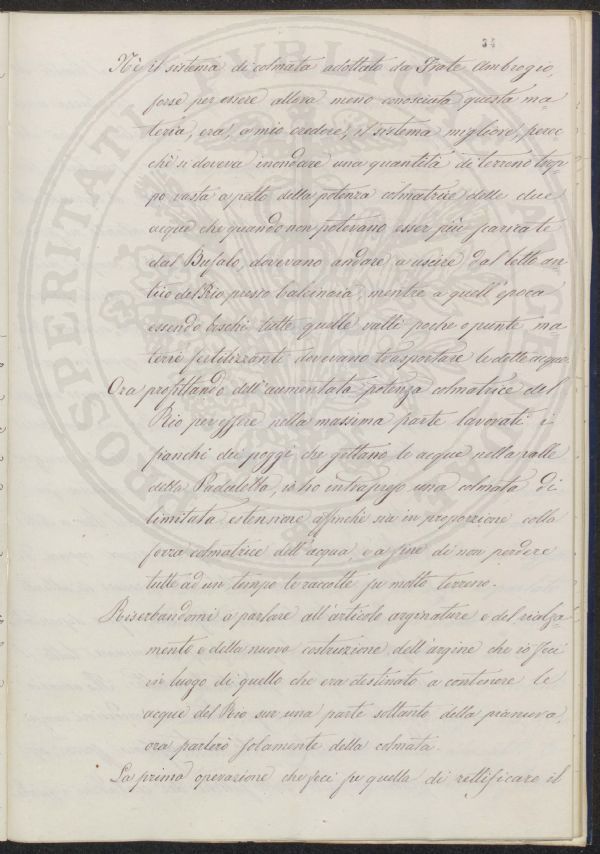 34
Nè il sistema di colmata adottato da Frate Ambrogio,
forse per essere allora meno conosciuta questa ma
teria, era, a mio credere, il sistema migliore, peroc
chè si doveva inondare una quantità di terreno trop-
po vasta a petto della potenza colmatrice delle due
acque che quando non potevano esser più caricate
dal Bufalo, dovevano andare a uscire dal letto an
tico del Rio presso Calcinaia, mentre a quell'epoca
essendo boschi tutte quelle valli poche o punte ma
terie fertilizzante dovevano trasportare le dette acque.
Ora profittando dell'aumentata potenza colmatrice del
Rio per essere nella massima parte lavorati i
fianchi dei poggi che gettano le acque nella valle
della Paduletta, io ho intrapreso una colmata di
limitata estensione affinchè sia in proporzione colla
forza colmatrice dell'acqua, e a fine di non perdere
tutte ad un tempo le raccolte su molto terreno.
Riserbandomi a parlare all'articolo arginature e del rialza-
mento e della nuova costruzione dell'argine che io feci
in luogo di quello che era destinato a contenere le
acque del Rio sur una parte soltanto della pianura,
ora parlerò solamente della colmata.
La prima operazione che feci fu quella di rettificare il
PROSPERITATI PUBLICAE